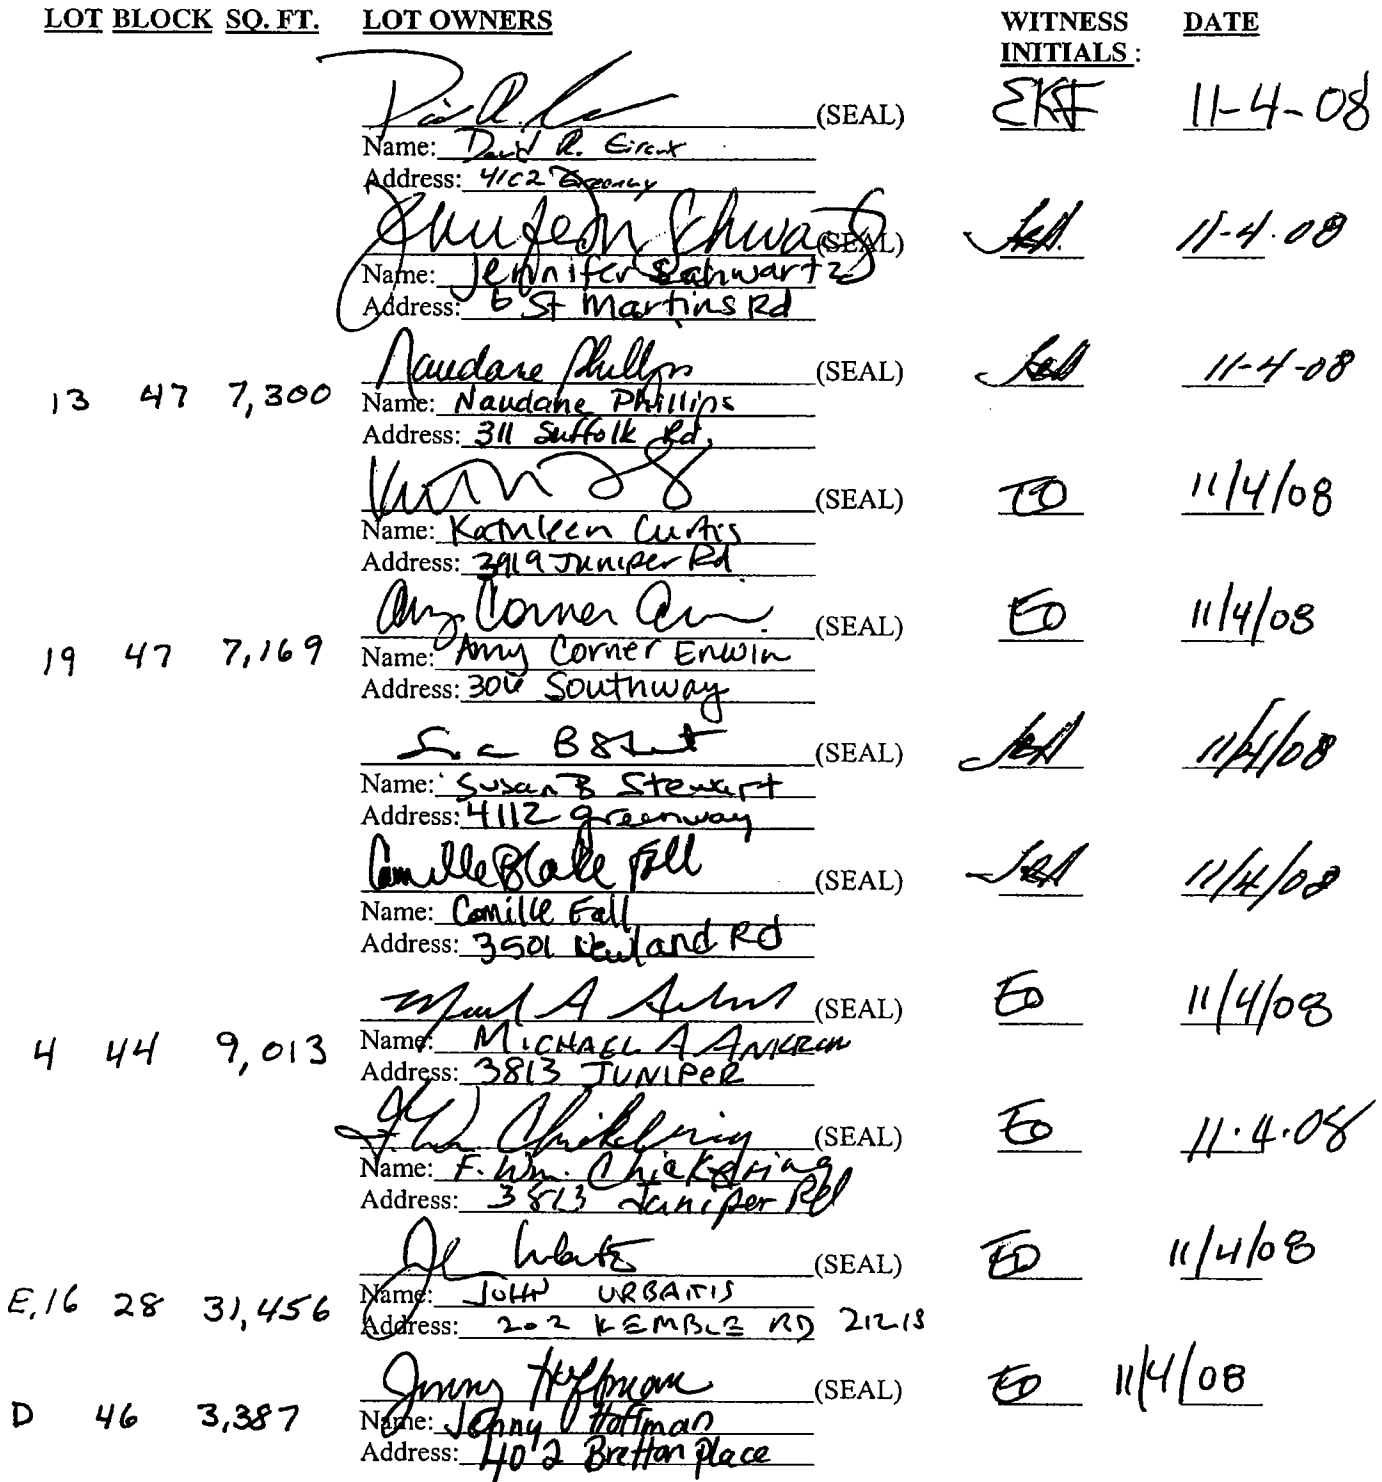 LOT BLOCK SQ. FT. LOT OWNERS WITNESS INITIALS : DATE
(SEAL) EKF 11-4-08
Name: David R.
Address:
Jennifer Schwartz (SEAL) 11-4-08
Name: Jennifer Schwartz
Address: 6 St Martins Rd
Naudane Phillips (SEAL) 11-4-08
13 47 7,300 Name: Naudane Phillips
Address: 311 Suffolk Rd.
(SEAL) EO 11/4/08
Name: Kathleen Curtis
Address: 3919 Juniper Rd
Amy Corner Erwin (SEAL) EO 11/4/08
19 47 7,169 Name: Amy Corner Erwin
Address: 306 Southway
(SEAL) 11/4/08
Name: Susan B Stewart
Address: 4112 greenway
Camille Blake Fall (SEAL) 11/4/08
Name: Camille Fall
Address: 3501 Newland Rd
(SEAL) EO 11/4/08
4 44 9,013 Name: MICHAEL A ANKRUM
Address: 3813 JUNIPER
F W Chickering (SEAL) EO 11.4.08
Name: F. Wm. Chickering
Address: 3813 Juniper Rd
(SEAL) EO 11/4/08
E,16 28 31,456 Name: JOHN URBAITIS
Address: 202 KEMBLE RD 21218
Jenny Hoffman (SEAL) EO 11/4/08
D 46 3,387 Name: Jenny Hoffman
Address: 402 Bretton Place